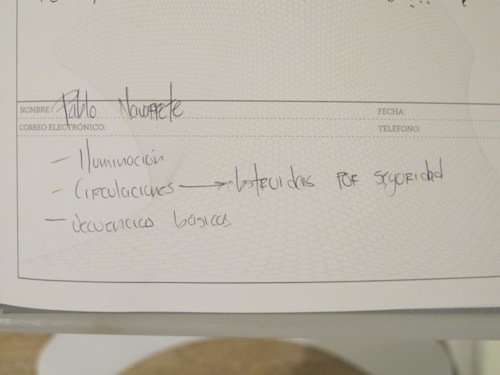 NOMBRE: Pablo Navarrete FECHA:
CORREO ELECTRÓNICO: TELÉFONO:
- Iluminación
- Circulaciones → obstruidas por seguridad
- secuencias básicas